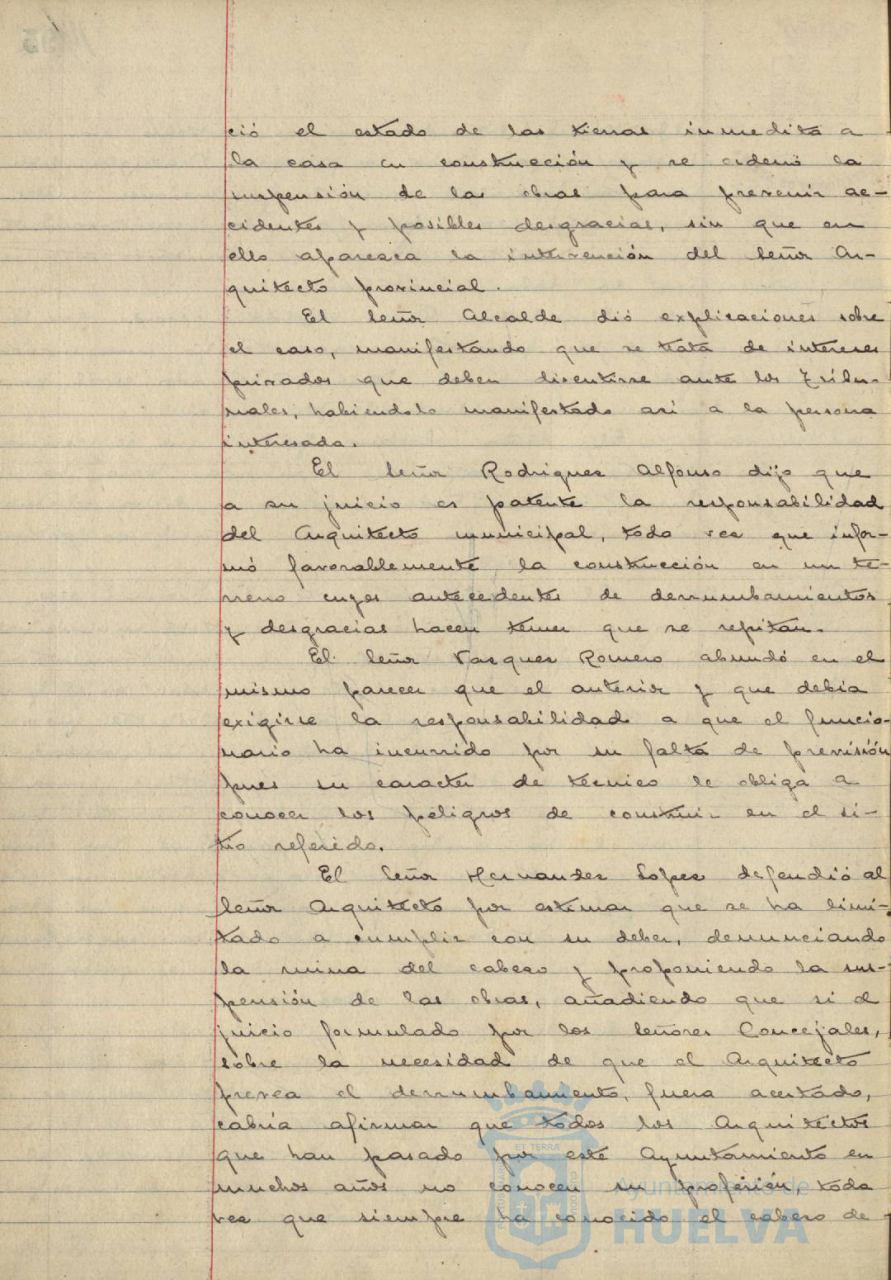 ció el estado de las tierras inmedita a
la casa en construcción y se ordenó la
suspensión de las obras para prevenir ac-
cidentes y posibles desgracias, sin que en
ello aparezca la intervención del Señor Ar-
quitecto provincial.
El Señor Alcalde dió explicaciones sobre
el caso, manifestando que se trata de intereses
privados que deben discutirse ante los Tribu-
nales, habiendolo manifestado asi a la persona
interesada.
El Señor Rodriguez Alfonso dijo que
a su juicio es patente la responsabilidad
del Arquitecto municipal, toda vez que infor-
mó favorablemente la construcción en un te-
rreno cuyos antecedentes de derrumbamientos
y desgracias hacen temer que se repitan.
El Señor Vazquez Romero abundó en el
mismo parecer que el anterior y que debia
exigirse la responsabilidad a que el funcio-
nario ha incurrido por su falta de previsión
pues su caracter de técnico le obliga a
conocer los peligros de construir en el si-
tio referido.
El Señor Hernandez Lopez defendió al
Señor Arquitecto por estimar que se ha limi-
tado a cumplir con su deber, denunciando
la ruina del cabezo y proponiendo la sus-
pensión de las obras, añadiendo que si el
juicio formulado por los Señores Concejales,
sobre la necesidad de que el Arquitecto
prevea el derrumbamiento, fuera acertado,
cabria afirmar que todos los Arquitectos
que han pasado por este Ayuntamiento en
muchos años no conocen su profesión, toda
vez que siempre ha conocido el cabezo de
Ayuntamiento de
HUELVA